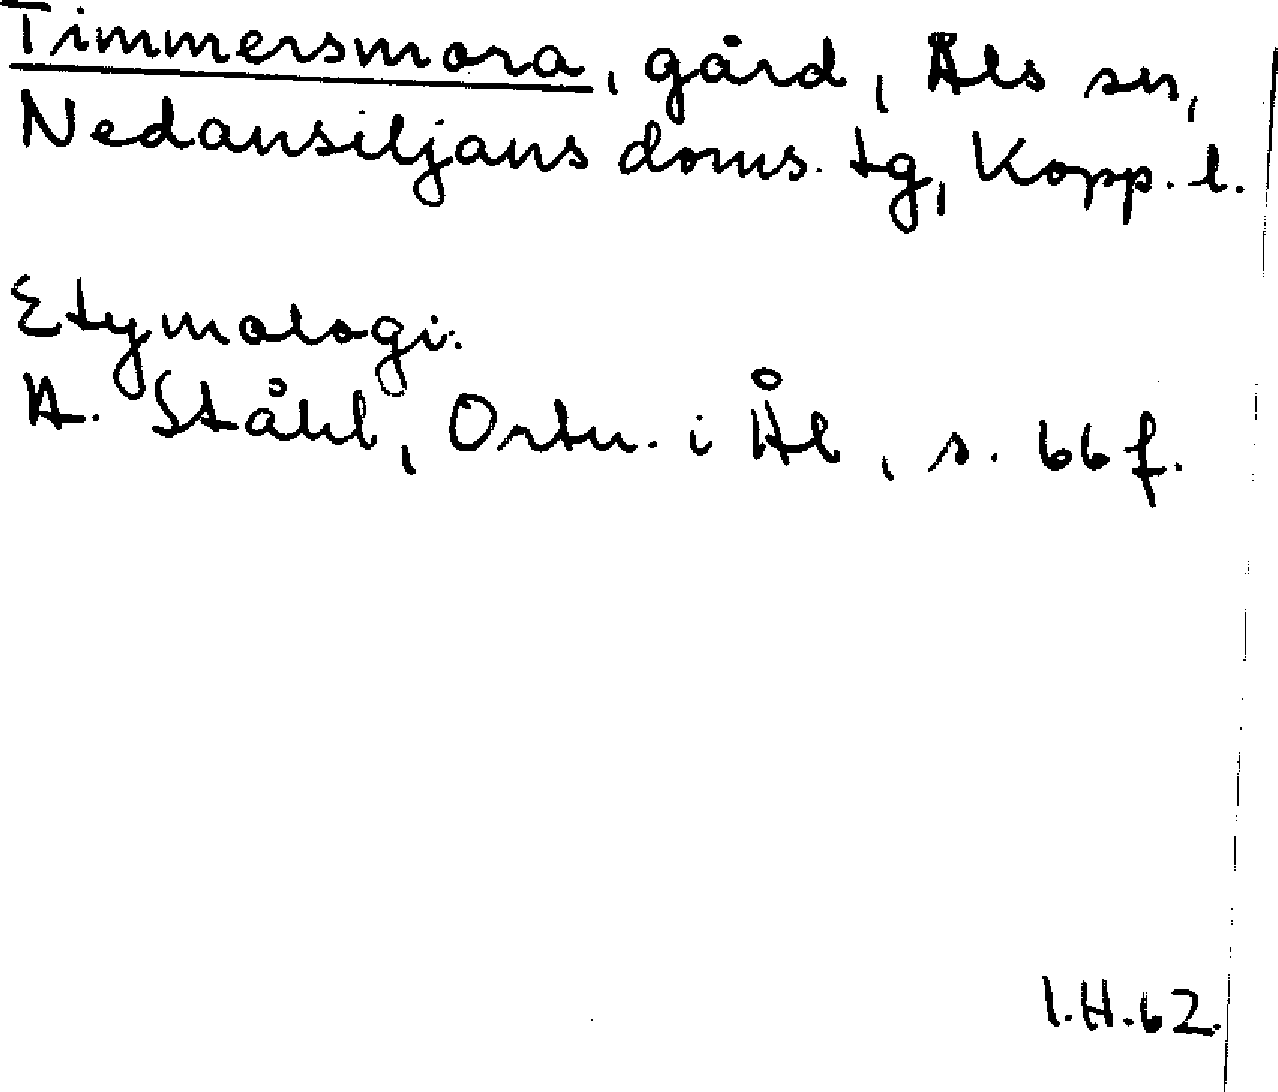 Timmersmora, gård, Åls sn,
Nedansiljans doms. tg, Kopp. l.
Etymologi.
H. Ståhl, Ortn. i Ål, s. 66 f.
I.H.62.